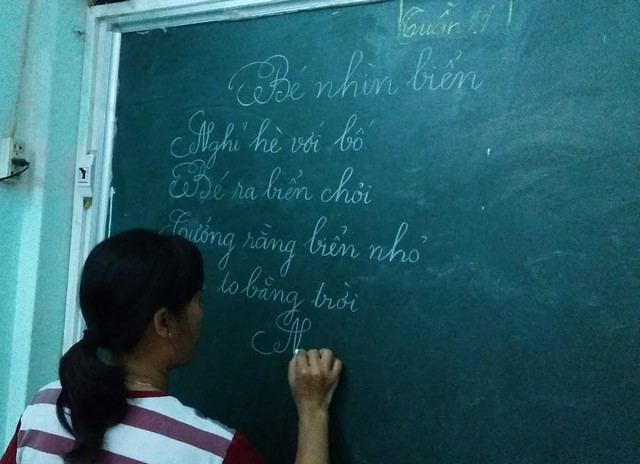 Tuần
Bé nhìn biển
Nghỉ hè với bố
Bé ra biển chơi
Tưởng rằng biển nhỏ
to bằng trời
N